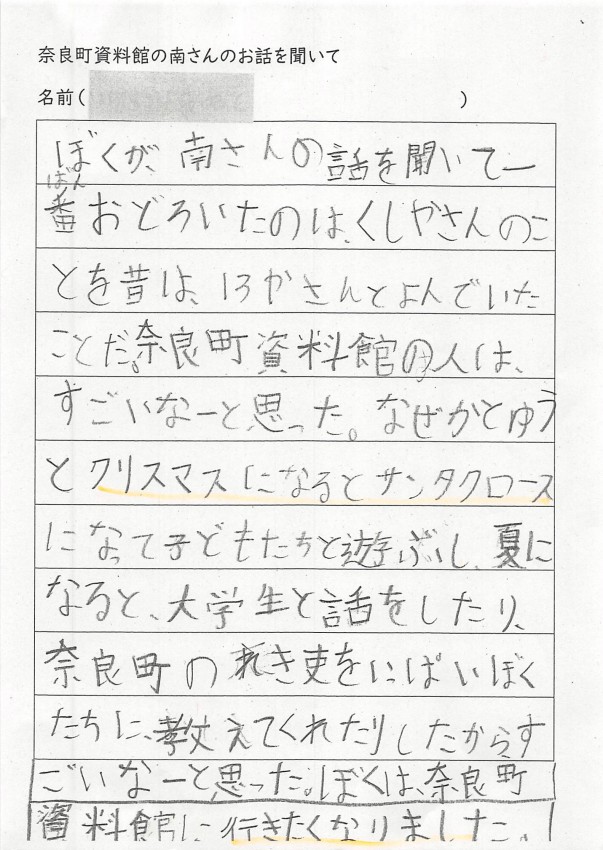 奈良町資料館の南さんのお話を聞いて
名前( )
ぼくが、南さんの話を聞いて一
番おどろいたのは、くしやさんのこ
ばん
とを昔は、13やさんとよんでいた
ことだ。奈良町資料館の人は、
すごいなーと思った。なぜかとゆう
とクリスマスになるとサンタクロース
になって子どもたちと遊ぶし、夏に
なると、大学生と話をしたり、
奈良町のれき史をいっぱいぼく
たちに、教えてくれたりしたからす
ごいなーと思った。ぼくは、奈良町
資料館に行きたくなりました。